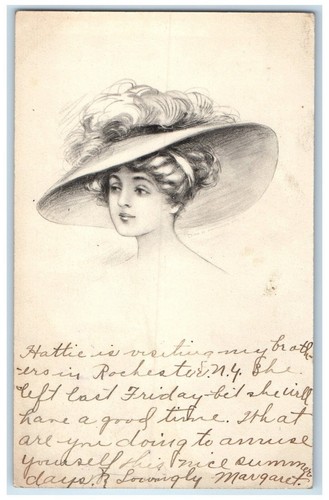 Hattie is visiting my broth-
ers in Rochester N.Y. She
left last Friday - bet she will
have a good time. What
are you doing to amuse
yourself this nice summer
days? Lovingly Margaret.